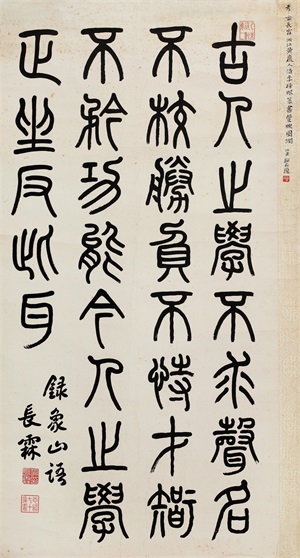 古人之學不求聲名
不校勝負不恃才智
不矜功能今人之學
正坐反此耳
錄象山語
長霖